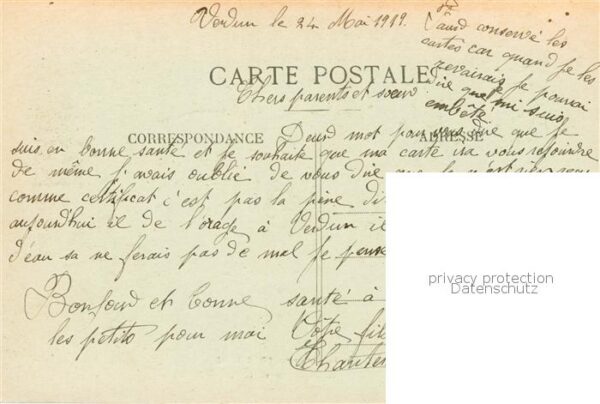 Verdun le 24 Mai 1919.
faud conservé les
cartes car quand je les
revairais je pourrai
dire que je mi suis
embêté
CARTE POSTALE
Chers parents et sœur
CORRESPONDANCE
ADRESSE
Deud mot pour vous dire que je
suis en bonne santé et je souhaite que ma carte ira vous rejoindre
de même j'avais oublié de vous dire que je n'est rien
comme certificat c'est pas la peine
aujourdhui il de l'orage à Verdun il
d'eau sa ne ferais pas de mal je pense
Bonjour et bonne santé à
les petits pour moi Votre fils
privacy protection
Datenschutz